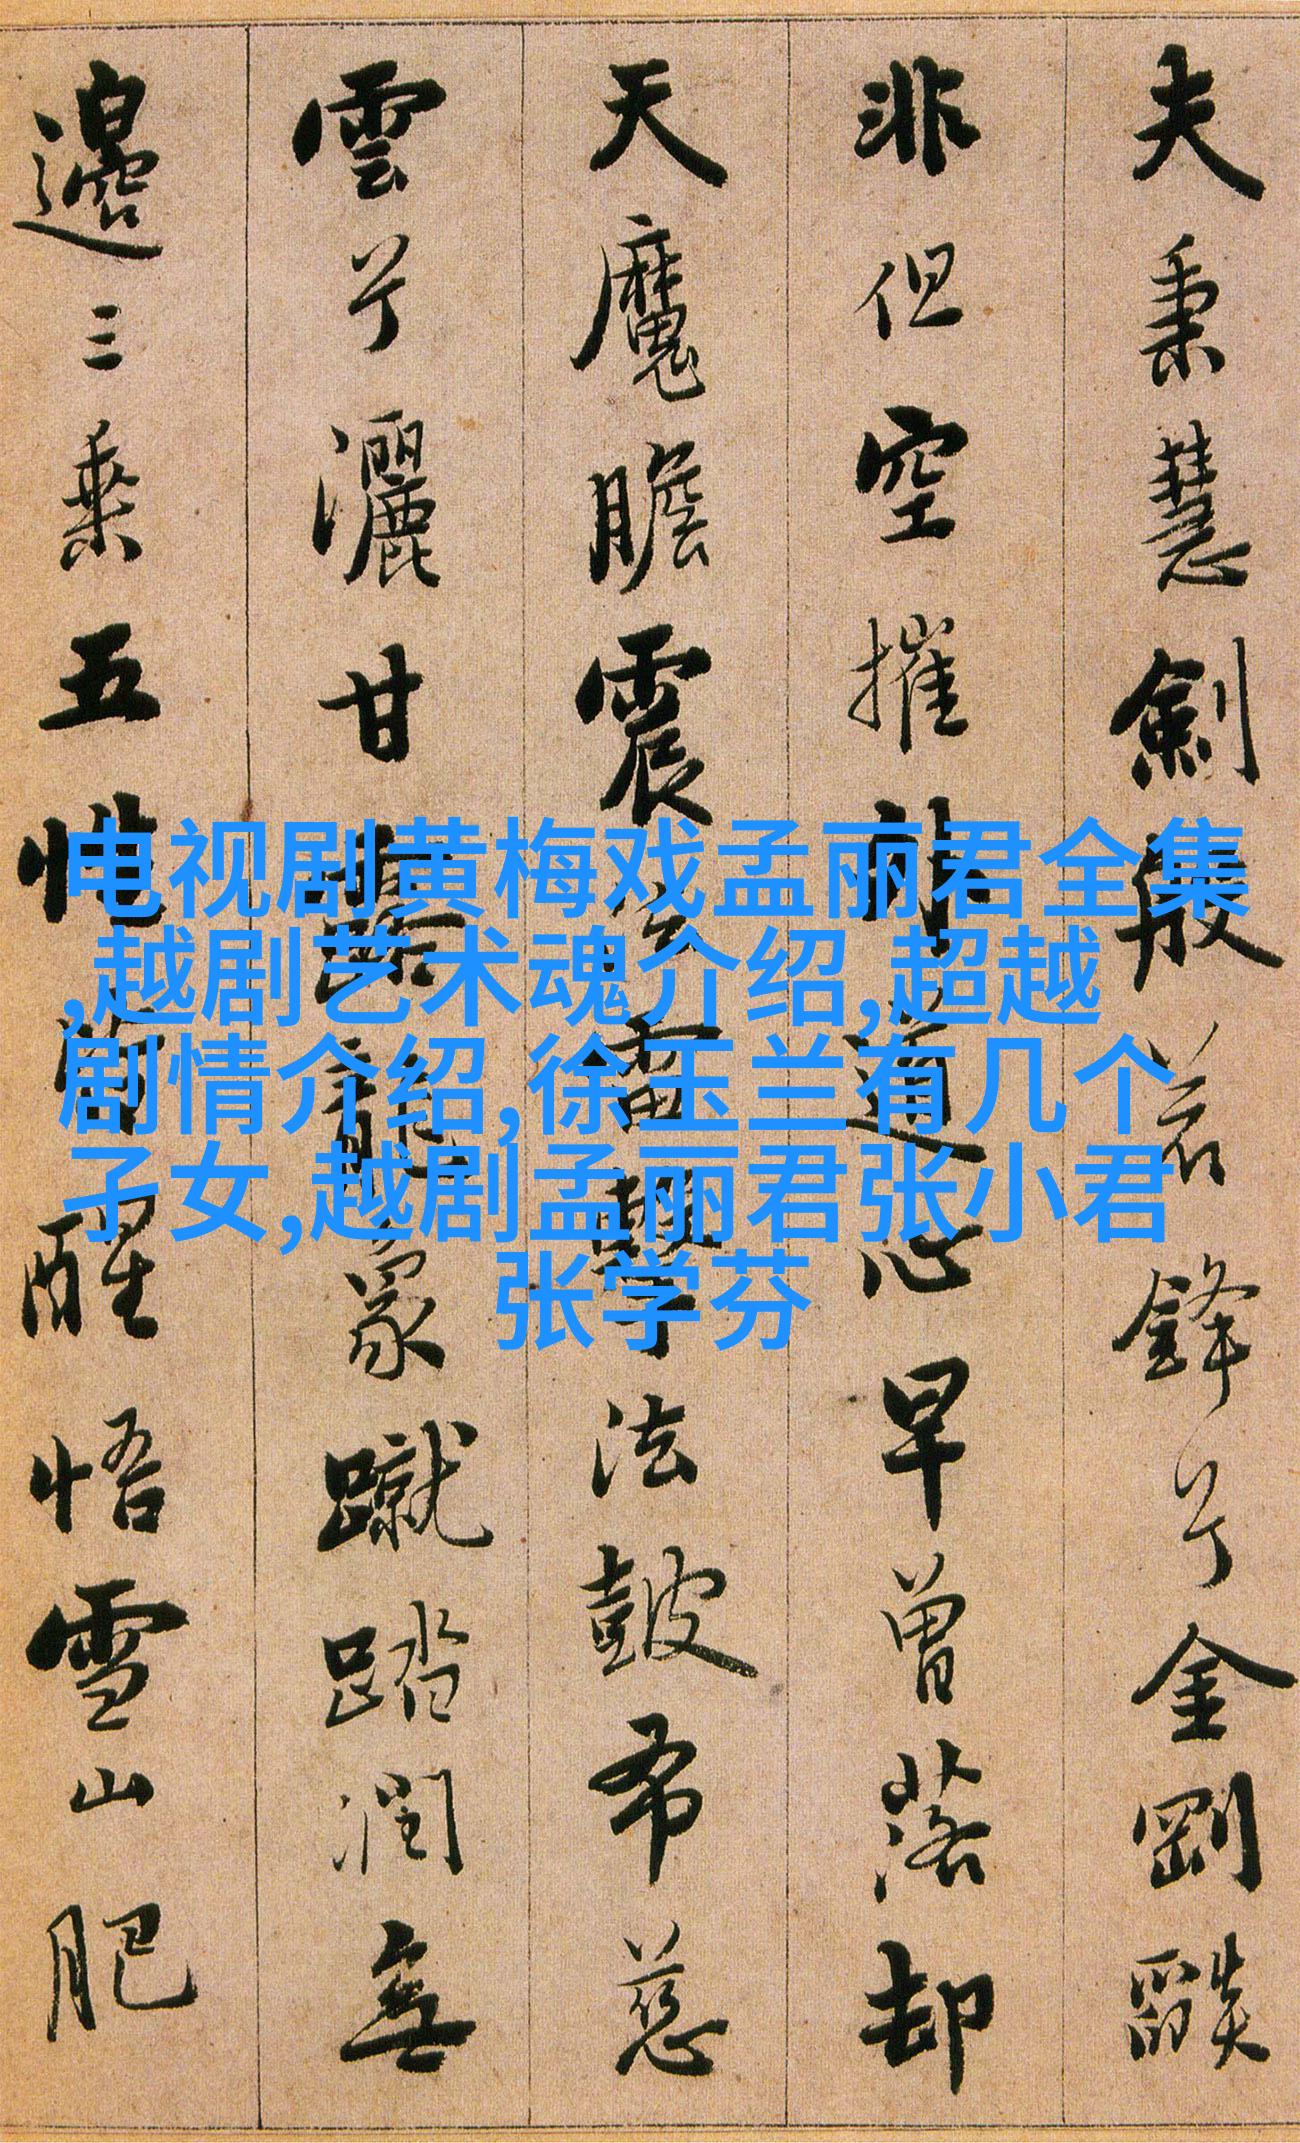 夫秉慧劍般若鋒兮金剛燄
非但空摧外道心早曾落却
天魔膽震法雷擊法鼓布慈
雲兮灑甘露龍象蹴踏潤無
邊三乘五性皆醒悟雪山肥
电视剧黄梅戏孟丽君全集
,越剧艺术魂介绍,超越
剧情介绍,徐玉兰有几个
孑女,越剧孟丽君张小君
张学芬